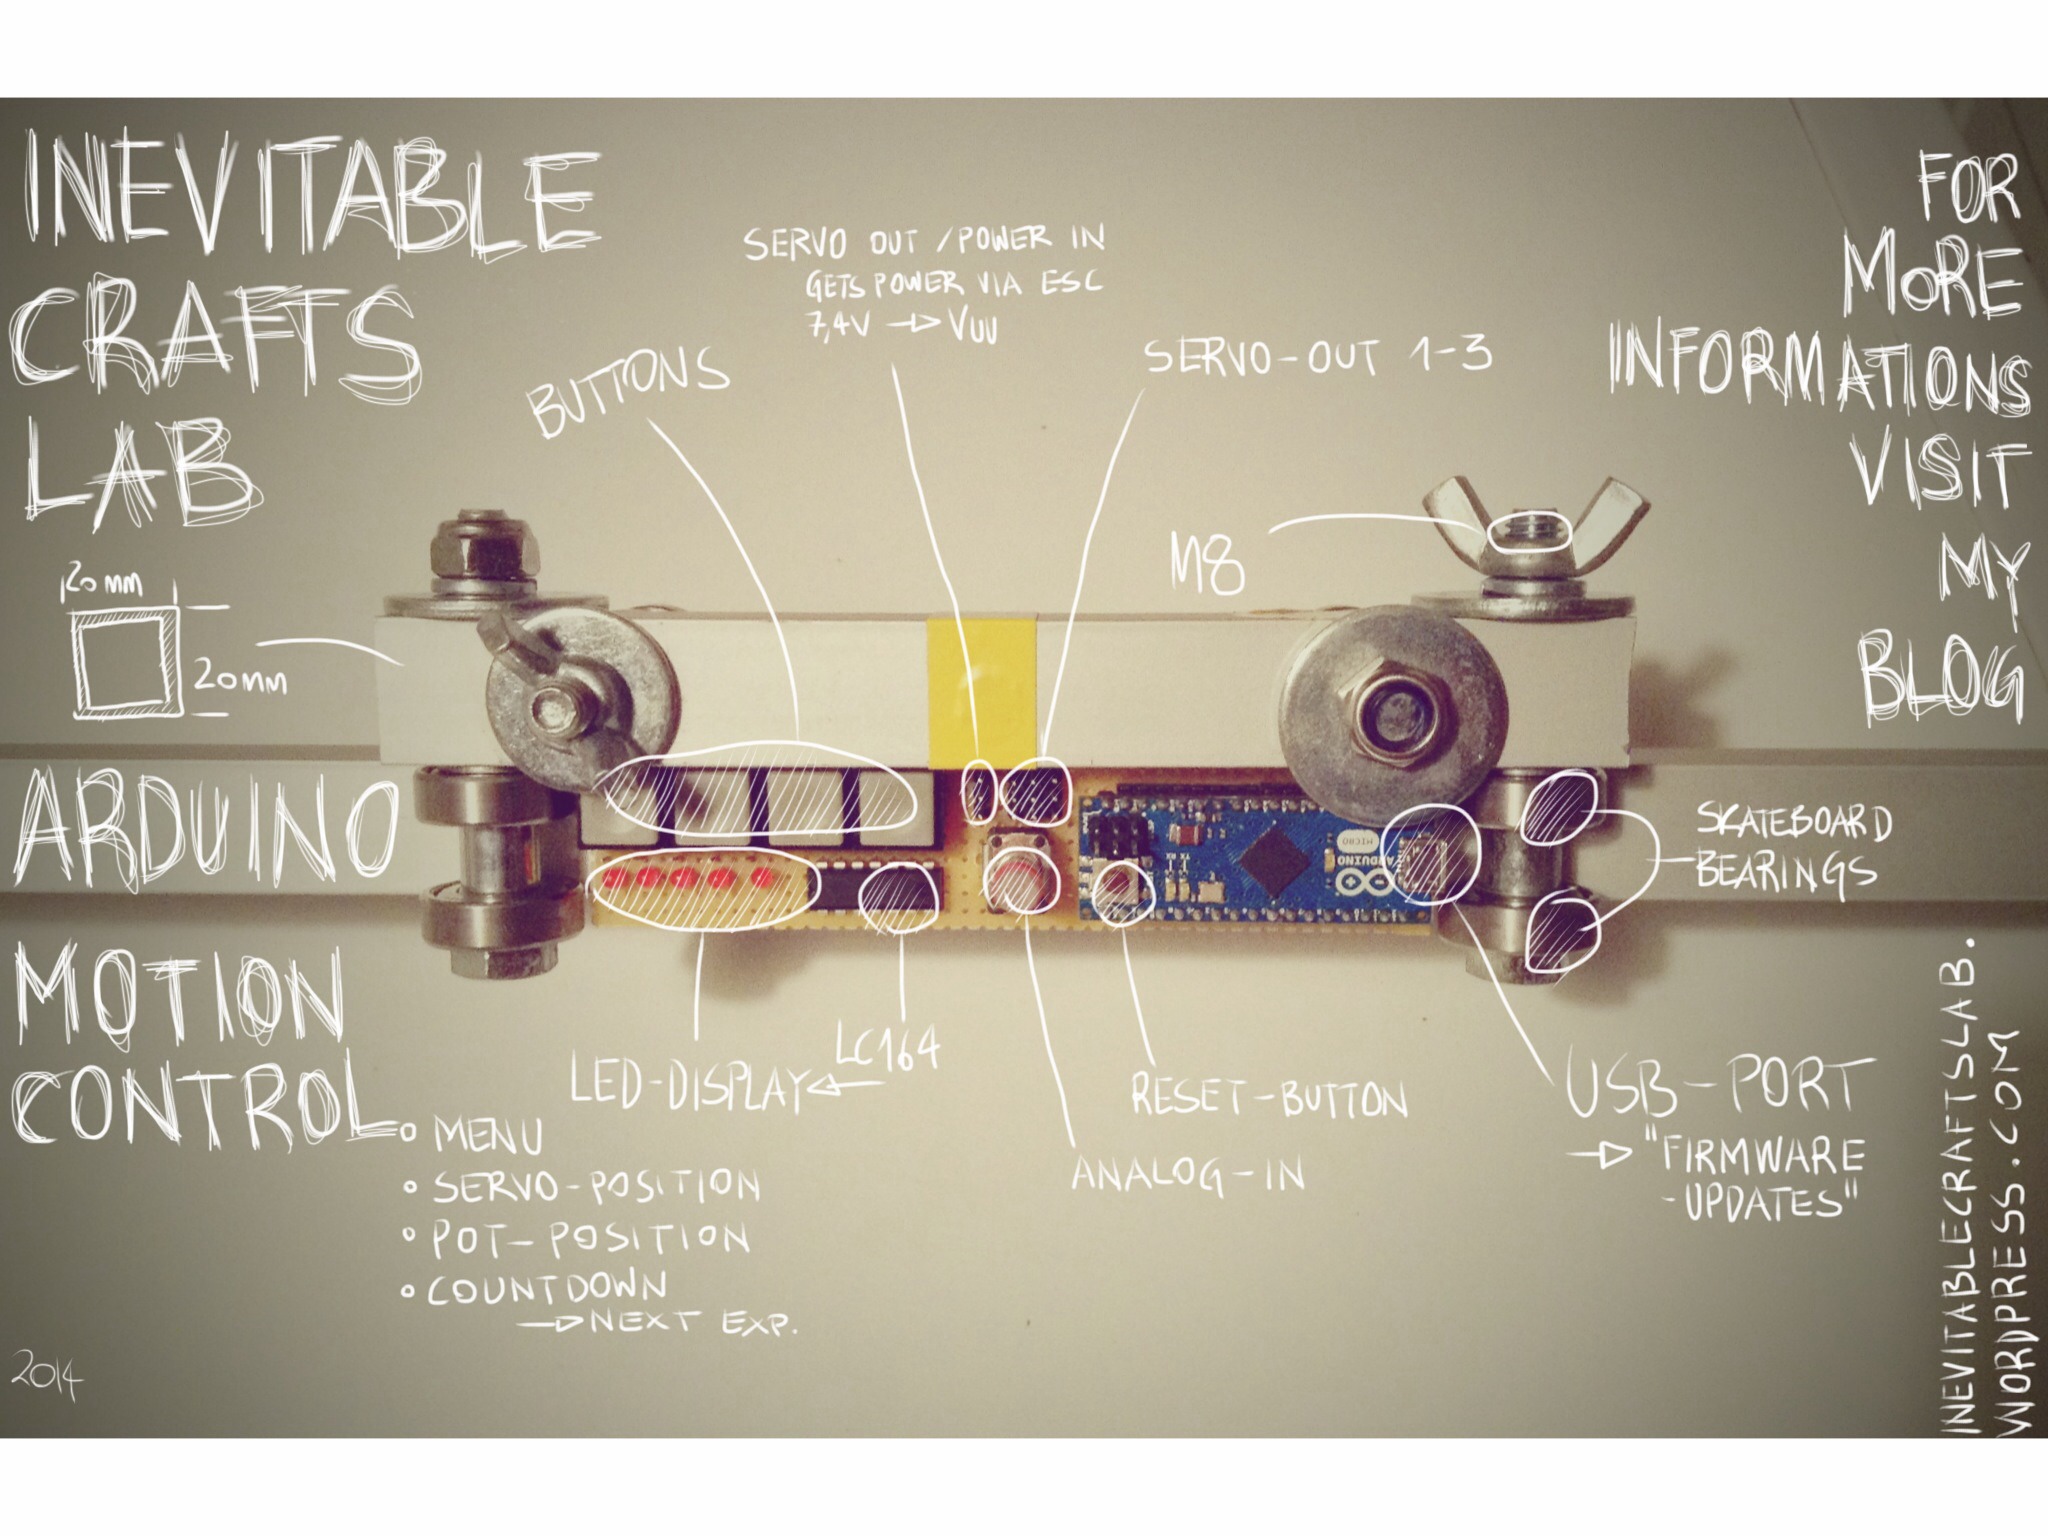 INEVITABLE
CRAFTS
LAB
20mm
20mm
ARDUINO
MOTION
CONTROL
2014
BUTTONS
SERVO OUT / POWER IN
GETS POWER VIA ESC
7,4V → VUU
SERVO-OUT 1-3
M8
FOR
MORE
INFORMATIONS
VISIT
MY
BLOG
SKATEBOARD
BEARINGS
ARDUINO
MICRO
LC164
LED-DISPLAY←
◦ MENU
◦ SERVO-POSITION
◦ POT-POSITION
◦ COUNTDOWN
→ NEXT EXP.
ANALOG-IN
RESET-BUTTON
USB-PORT
→ "FIRMWARE
-UPDATES"
INEVITABLECRAFTSLAB.
WORDPRESS.COM